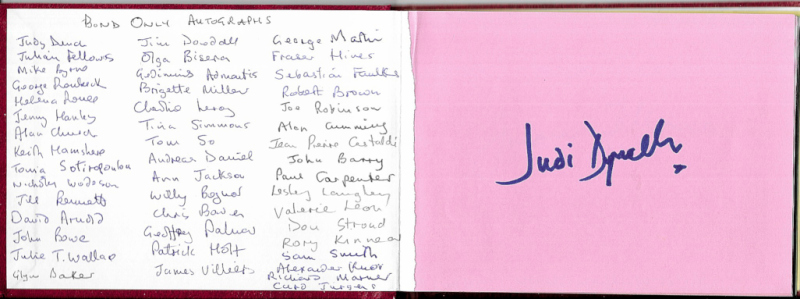 BOND ONLY AUTOGRAPHS
Judy Dench
Julian Fellows
Mike Byrne
George Roubeck
Helena Ronee
Jenny Hanley
Alan Church
Keith Hamshere
Tonia Sotiropoulou
Nicholas Woodeson
Jill Bennett
David Arnold
John Bowe
Julie T. Wallace
Glyn Baker
Jim Dowdall
Olga Bisera
Gediminis Adomaitis
Brigette Millar
Claudio
Tina Simmons
Tom So
Andreas Daniel
Ann Jackson
Willy Bogner
Chris
Geoffrey Palmer
Patrick Holt
James Villiers
George Martin
Fraser Hines
Sebastian Faulks
Robert Brown
Joe Robinson
Alan Cumming
Jean Pierre Castaldi
John Barry
Paul Carpenter
Lesley Langley
Valerie Leon
Don Stroud
Rory Kinnear
Sam Smith
Alexander Knox
Richard Marner
Curd Jurgens
Judi Dench